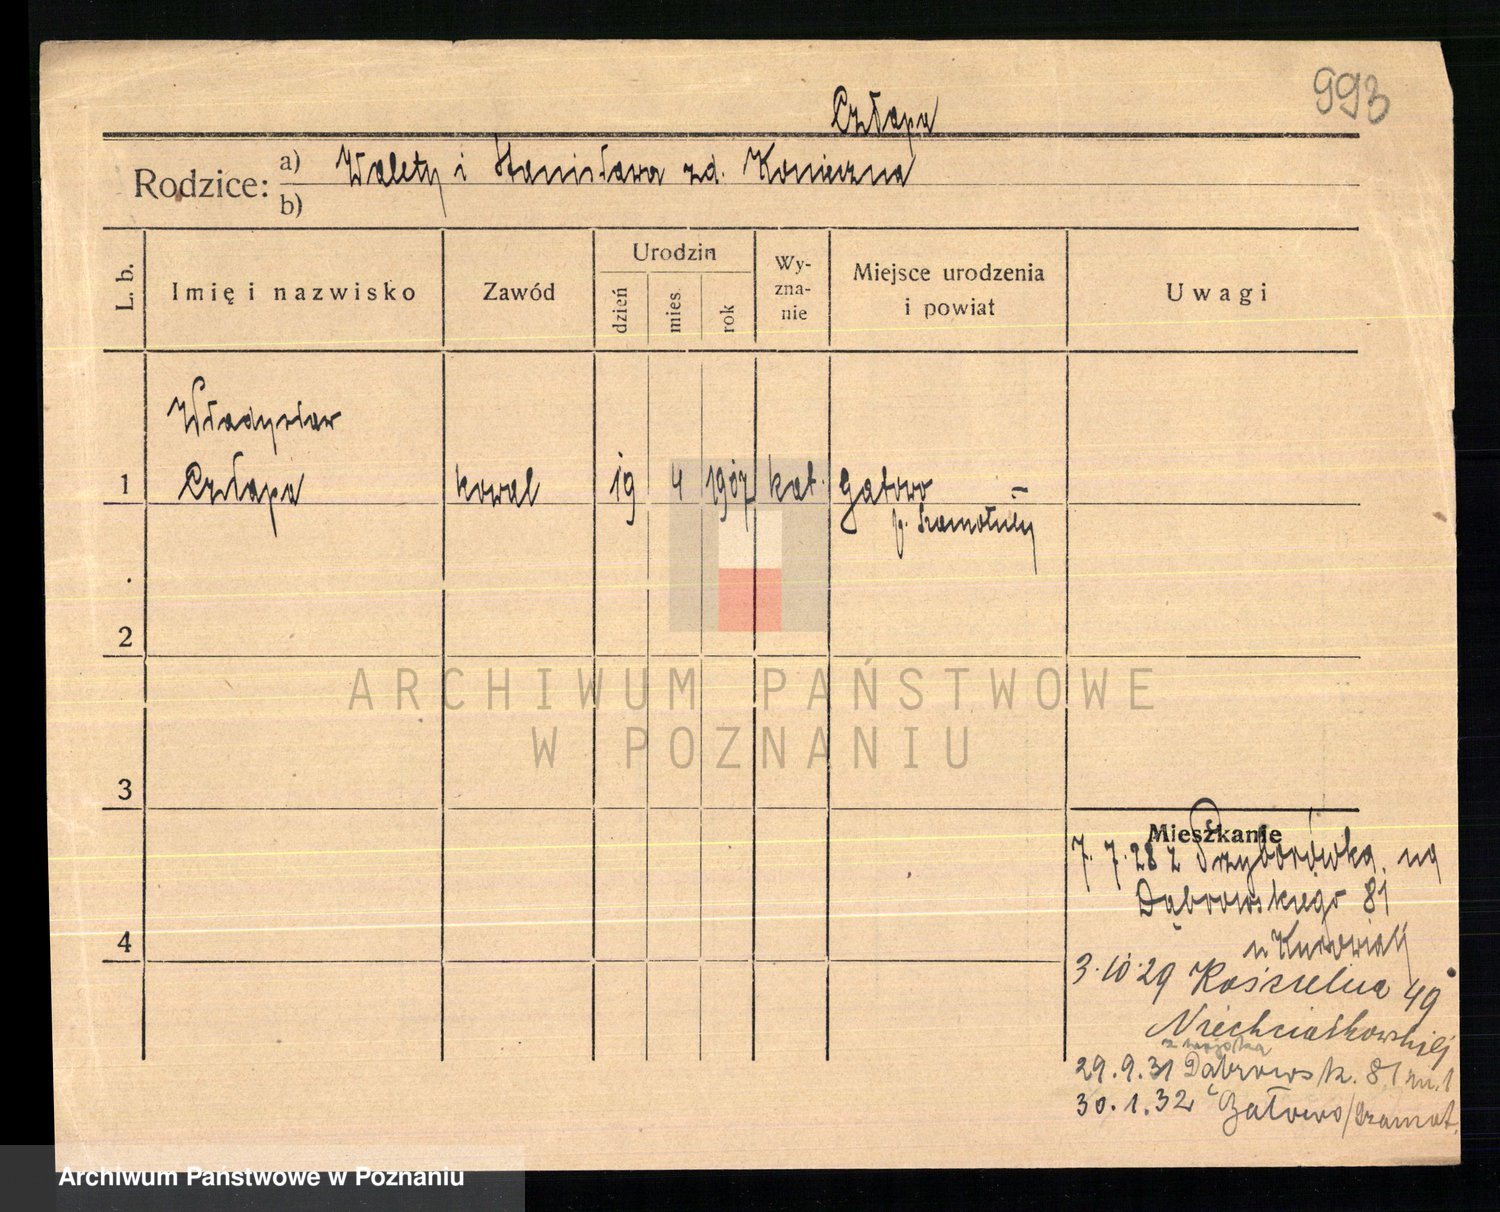 993
Człapa
Rodzice: a) Walety i Stanisława zd. Konieczna
b)
L. b. Imię i nazwisko Zawód Urodzin dzień mies rok Wy-zna-nie Miejsce urodzenia i powiat Uwagi
Władysław
1 Człapa kowal 19 4 1907 kat. Gałowo
p. Szamotuły
2
ARCHIWUM PAŃSTWOWE
W POZNANIU
3
Mieszkanie
7.7.28 z Przyborówka na
Dąbrowskiego 81
u
4
3.10.29 Kościelna 49
z wojska
29.9.31 Dąbrowsk. 81 m. 1
30.1.32 Gałowo/Szamot.
Archiwum Państwowe w Poznaniu